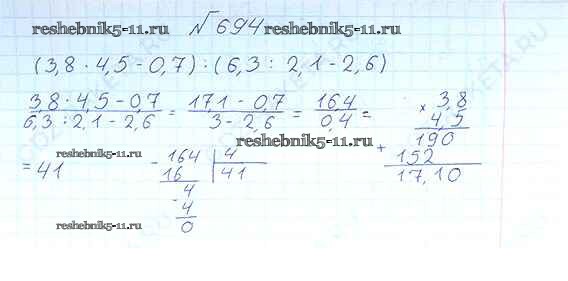 reshebnik5-11.ru №694 reshebnik5-11.ru
(3,8 · 4,5 - 0,7) : (6,3 : 2,1 - 2,6)
3,8 · 4,5 - 0,7 / 6,3 : 2,1 - 2,6 = 17,1 - 0,7 / 3 - 2,6 = 16,4 / 0,4 =
reshebnik5-11.ru
= 41
reshebnik5-11.ru
- 164 | 4
16 | 41
- 4
4
0
× 3,8
4,5
190
+ 152
17,10
reshebnik5-11.ru